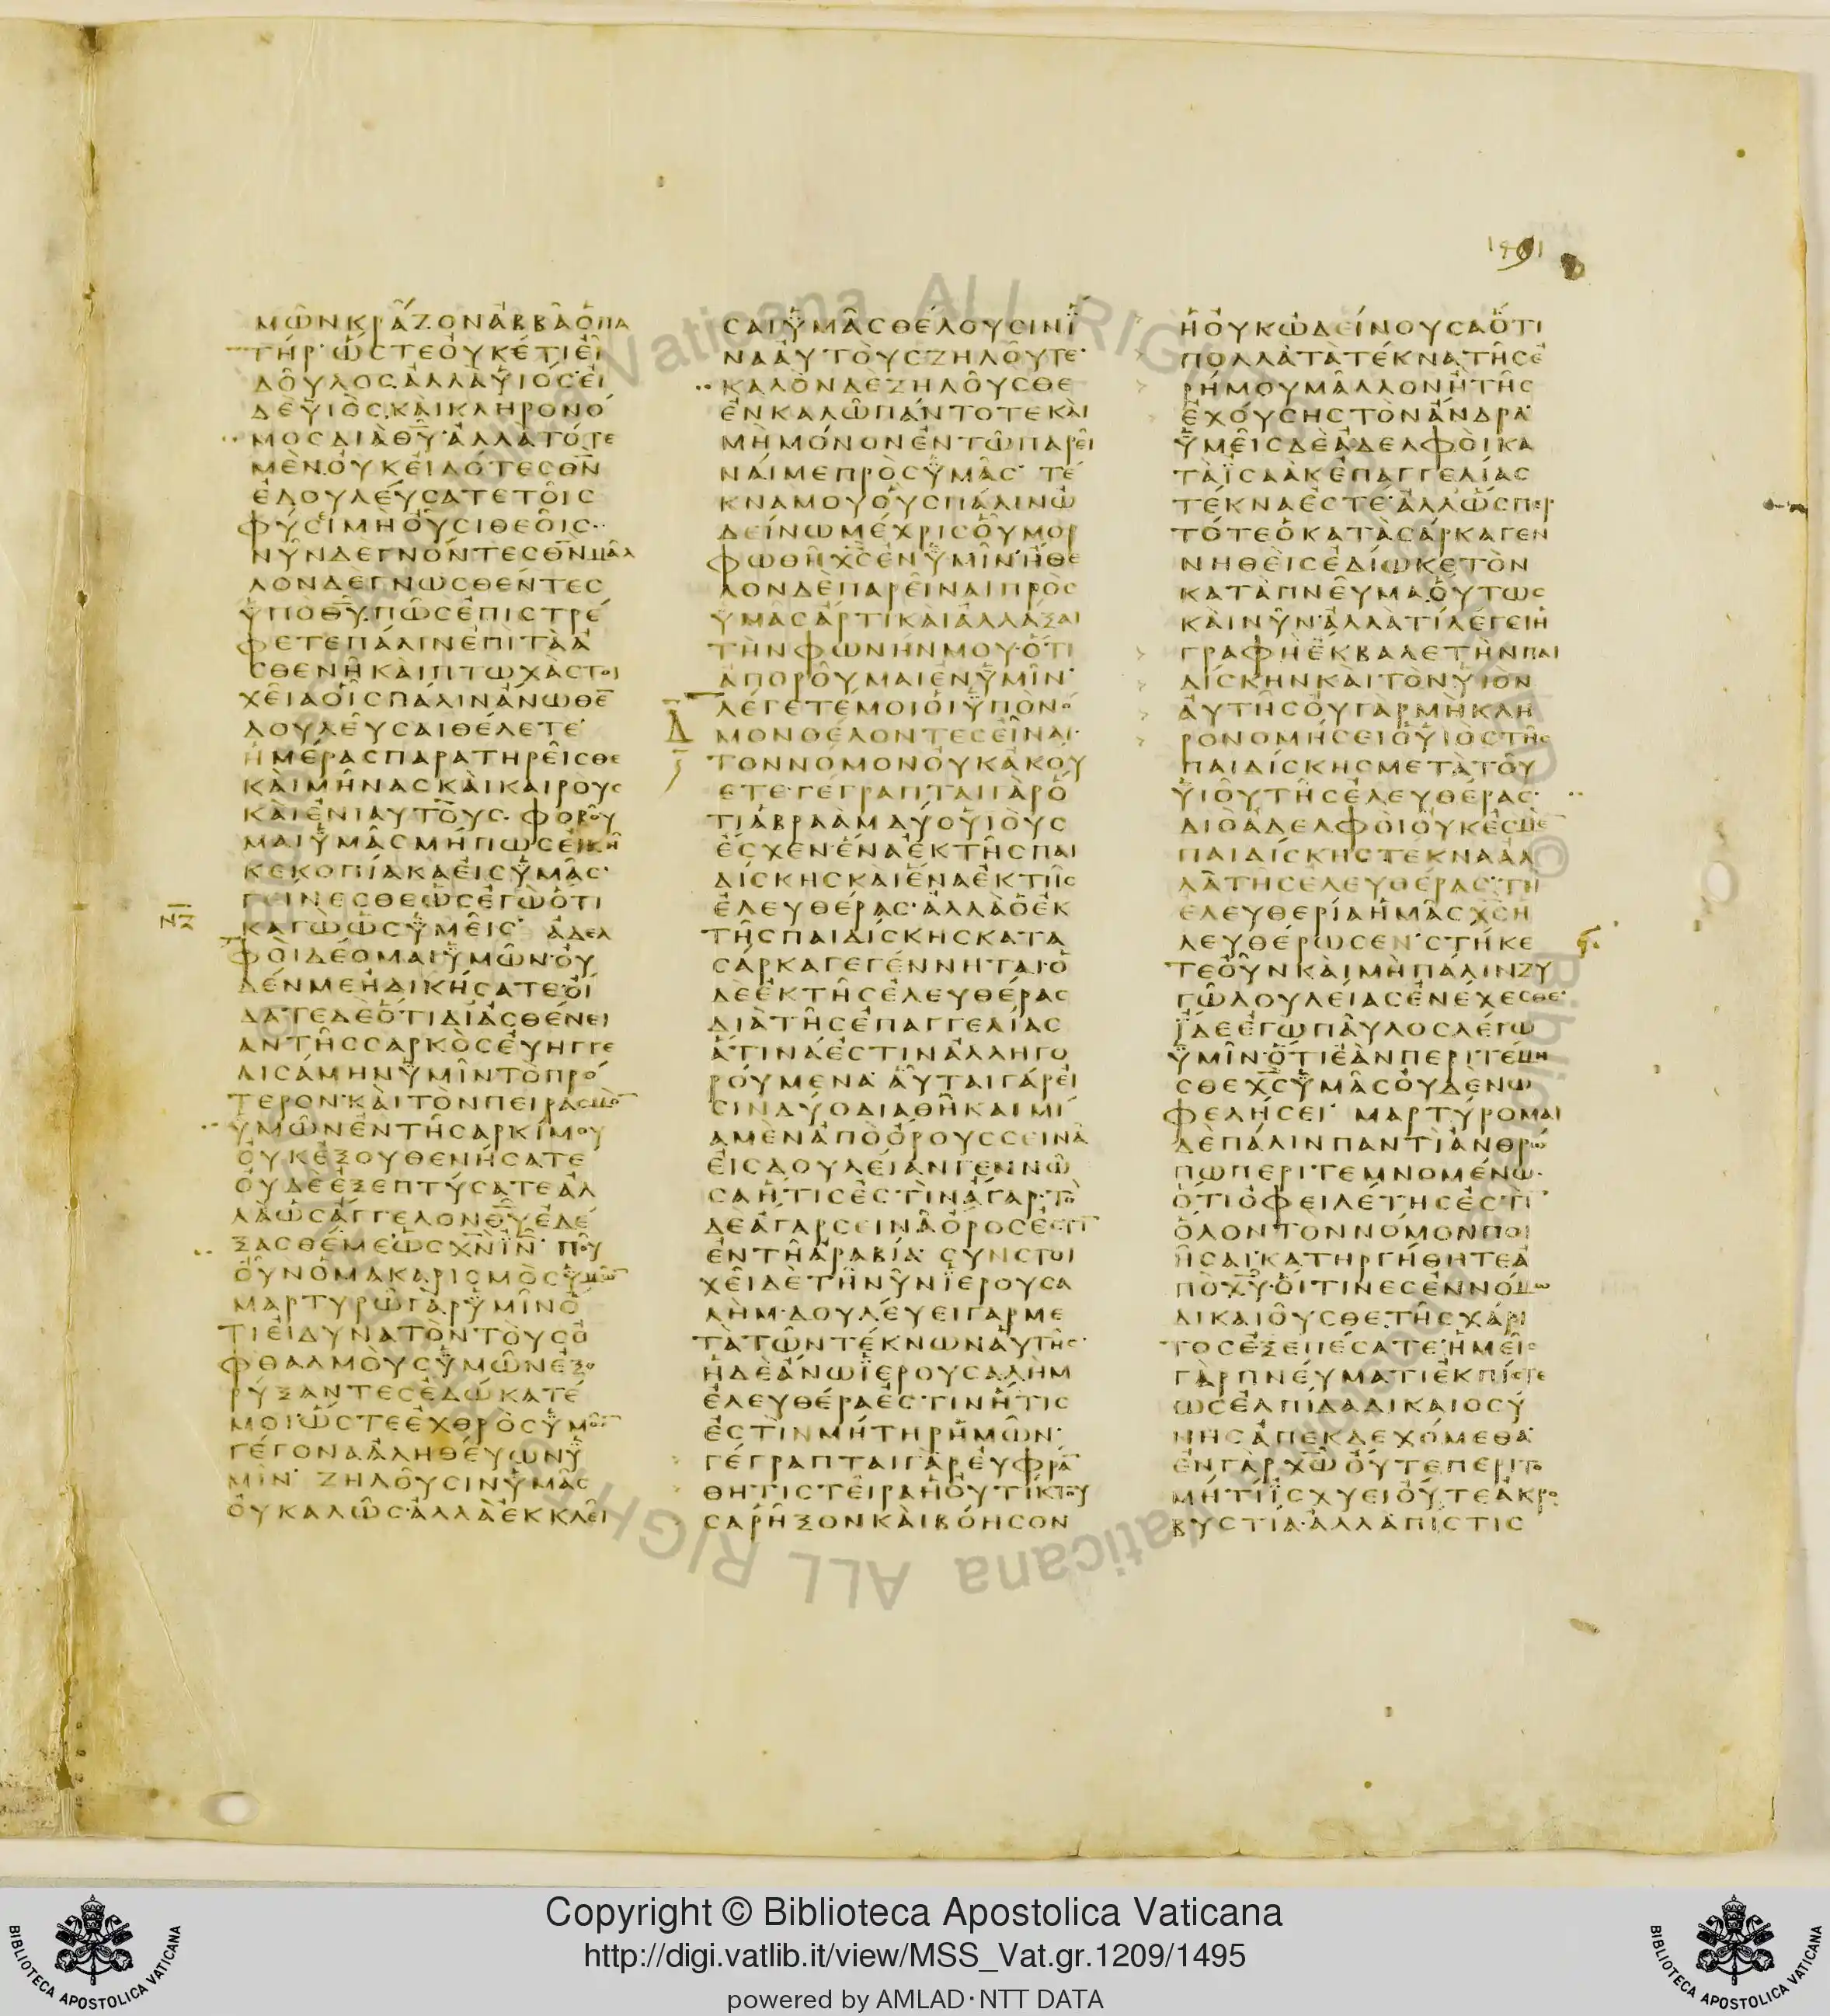 1491
ΜΩΝΚΡΑΖΟΝΑΒΒΑΟΠΑ
ΤΗΡ·ΩΣΤΕΟΥΚΕΤΙΕΙ
ΔΟΥΛΟΣ·ΑΛΛΑΥΙΟΣ·ΕΙ
ΔΕΥΙΟΣ·ΚΑΙΚΛΗΡΟΝΟ
ΜΟΣΔΙΑΘΥ·ΑΛΛΑΤΟΤΕ
ΜΕΝ·ΟΥΚΕΙΔΟΤΕΣΘΝ
ΕΔΟΥΛΕΥΣΑΤΕΤΟΙΣ
ΦΥΣΙΜΗΟΥΣΙΘΕΟΙΣ··
ΝΥΝΔΕΓΝΟΝΤΕΣΘΝΜΑΛ
ΛΟΝΔΕΓΝΩΣΘΕΝΤΕΣ
ΫΠΟΘΥ·ΠΩΣΕΠΙΣΤΡΕ
ΦΕΤΕΠΑΛΙΝΕΠΙΤΑΑ
ΣΘΕΝΗΚΑΙΠΤΩΧΑΣΤΟΙ
ΧΕΙΑΟΙΣΠΑΛΙΝΑΝΩΘΕ
ΔΟΥΛΕΥΣΑΙΘΕΛΕΤΕ·
ΗΜΕΡΑΣΠΑΡΑΤΗΡΕΙΣΘΕ
ΚΑΙΜΗΝΑΣΚΑΙΚΑΙΡΟΥΣ
ΚΑΙΕΝΙΑΥΤΟΥΣ·ΦΟΒΟΥ
ΜΑΙΫΜΑΣΜΗΠΩΣΕΙΚΗ
ΚΕΚΟΠΙΑΚΑΕΙΣΫΜΑΣ·
ΓΕΙΝΕΣΘΕΩΣΕΓΩΟΤΙ
ΚΑΓΩΩΣΫΜΕΙΣ· ΑΔΕΛ
ΦΟΙΔΕΟΜΑΙΫΜΩΝ·ΟΥ
ΔΕΝΜΕΗΔΙΚΗΣΑΤΕ·ΟΙ
ΔΑΤΕΔΕΟΤΙΔΙΑΣΘΕΝΕΙ
ΑΝΤΗΣΣΑΡΚΟΣΕΥΗΓΓΕ
ΛΙΣΑΜΗΝΫΜΙΝΤΟΠΡΟ
ΤΕΡΟΝ·ΚΑΙΤΟΝΠΕΙΡΑΣΜΟ
ΫΜΩΝΕΝΤΗΣΑΡΚΙΜΟΥ
ΟΥΚΕΞΟΥΘΕΝΗΣΑΤΕ
ΟΥΔΕΕΞΕΠΤΥΣΑΤΕΑΛ
ΛΑΩΣΑΓΓΕΛΟΝΘΥΕΔΕ
ΞΑΣΘΕΜΕ·ΩΣΧΝΙΝ· ΠΟΥ
ΟΥΝΟΜΑΚΑΡΙΣΜΟΣΫΜΩ
ΜΑΡΤΥΡΩΓΑΡΫΜΙΝΟ
ΤΙΕΙΔΥΝΑΤΟΝΤΟΥΣΟ
ΦΘΑΛΜΟΥΣΫΜΩΝΕΞΟ
ΡΥΞΑΝΤΕΣΕΔΩΚΑΤΕ
ΜΟΙ·ΩΣΤΕΕΧΘΡΟΣΫΜΩ
ΓΕΓΟΝΑΑΛΗΘΕΥΩΝΫ
ΜΙΝ· ΖΗΛΟΥΣΙΝΫΜΑΣ
ΟΥΚΑΛΩΣ·ΑΛΛΑΕΚΚΛΕΙ
ΣΑΙΫΜΑΣΘΕΛΟΥΣΙΝΪ
ΝΑΑΥΤΟΥΣΖΗΛΟΥΤΕ·
ΚΑΛΟΝΔΕΖΗΛΟΥΣΘΕ
ΕΝΚΑΛΩΠΑΝΤΟΤΕΚΑΙ
ΜΗΜΟΝΟΝΕΝΤΩΠΑΡΕΙ
ΝΑΙΜΕΠΡΟΣΫΜΑΣ· ΤΕ
ΚΝΑΜΟΥΟΥΣΠΑΛΙΝΩ
ΔΕΙΝΩΜΕΧΡΙΣΟΥΜΟΡ
ΦΩΘΗΧΣΕΝΫΜΙΝ·ΗΘΕ
ΛΟΝΔΕΠΑΡΕΙΝΑΙΠΡΟΣ
ΫΜΑΣΑΡΤΙΚΑΙΑΛΛΑΞΑΙ
ΤΗΝΦΩΝΗΝΜΟΥ·ΟΤΙ
ΑΠΟΡΟΥΜΑΙΕΝΫΜΙΝ·
ΛΕΓΕΤΕΜΟΙΟΙΫΠΟΝΟ
ΜΟΝΘΕΛΟΝΤΕΣΕΙΝΑΙ·
ΤΟΝΝΟΜΟΝΟΥΚΑΚΟΥ
ΕΤΕ·ΓΕΓΡΑΠΤΑΙΓΑΡΟ
ΤΙΑΒΡΑΑΜΔΥΟΥΙΟΥΣ
ΕΣΧΕΝ·ΕΝΑΕΚΤΗΣΠΑΙ
ΔΙΣΚΗΣΚΑΙΕΝΑΕΚΤΗΣ
ΕΛΕΥΘΕΡΑΣ·ΑΛΛΑΟΕΚ
ΤΗΣΠΑΙΔΙΣΚΗΣΚΑΤΑ
ΣΑΡΚΑΓΕΓΕΝΝΗΤΑΙ·Ο
ΔΕΕΚΤΗΣΕΛΕΥΘΕΡΑΣ
ΔΙΑΤΗΣΕΠΑΓΓΕΛΙΑΣ
ΑΤΙΝΑΕΣΤΙΝΑΛΛΗΓΟ
ΡΟΥΜΕΝΑ· ΑΥΤΑΙΓΑΡΕΙ
ΣΙΝΔΥΟΔΙΑΘΗΚΑΙΜΙ
ΑΜΕΝΑΠΟΟΡΟΥΣΣΕΙΝΑ
ΕΙΣΔΟΥΛΕΙΑΝΓΕΝΝΩ
ΣΑΗΤΙΣΕΣΤΙΝΑΓΑΡ·ΤΟ
ΔΕΑΓΑΡΣΕΙΝΑΟΡΟΣΕΣΤΙ
ΕΝΤΗΑΡΑΒΙΑ· ΣΥΝΣΤΟΙ
ΧΕΙΔΕΤΗΝΥΝΪΕΡΟΥΣΑ
ΛΗΜ·ΔΟΥΛΕΥΕΙΓΑΡΜΕ
ΤΑΤΩΝΤΕΚΝΩΝΑΥΤΗΣ·
ΗΔΕΑΝΩΪΕΡΟΥΣΑΛΗΜ
ΕΛΕΥΘΕΡΑΕΣΤΙΝΗΤΙΣ
ΕΣΤΙΝΜΗΤΗΡΗΜΩΝ·
ΓΕΓΡΑΠΤΑΙΓΑΡΕΥΦΡΑ
ΘΗΤΙΣΤΕΙΡΑΗΟΥΤΙΚΤΟΥ
ΣΑΡΗΞΟΝΚΑΙΒΟΗΣΟΝ
ΗΟΥΚΩΔΕΙΝΟΥΣΑΟΤΙ
ΠΟΛΛΑΤΑΤΕΚΝΑΤΗΣΕ
ΡΗΜΟΥΜΑΛΛΟΝΗΤΗΣ
ΕΧΟΥΣΗΣΤΟΝΑΝΔΡΑ·
ΫΜΕΙΣΔΕΑΔΕΛΦΟΙΚΑ
ΤΑΪΣΑΑΚΕΠΑΓΓΕΛΙΑΣ
ΤΕΚΝΑΕΣΤΕ·ΑΛΛΩΣΠΕΡ
ΤΟΤΕΟΚΑΤΑΣΑΡΚΑΓΕΝ
ΝΗΘΕΙΣΕΔΙΩΚΕΤΟΝ
ΚΑΤΑΠΝΕΥΜΑ·ΟΥΤΩΣ
ΚΑΙΝΥΝ·ΑΛΛΑΤΙΛΕΓΕΙΗ
ΓΡΑΦΗΕΚΒΑΛΕΤΗΝΠΑΙ
ΔΙΣΚΗΝΚΑΙΤΟΝΥΙΟΝ
ΑΥΤΗΣΟΥΓΑΡΜΗΚΛΗ
ΡΟΝΟΜΗΣΕΙΟΥΙΟΣΤΗΣ
ΠΑΙΔΙΣΚΗΣΜΕΤΑΤΟΥ
ΫΙΟΥΤΗΣΕΛΕΥΘΕΡΑΣ·
ΔΙΟΑΔΕΛΦΟΙΟΥΚΕΣΜΕ
ΠΑΙΔΙΣΚΗΣΤΕΚΝΑΑΛ
ΛΑΤΗΣΕΛΕΥΘΕΡΑΣ·ΤΗ
ΕΛΕΥΘΕΡΙΑΗΜΑΣΧΣΗ
ΛΕΥΘΕΡΩΣΕΝ·ΣΤΗΚΕ
ΤΕΟΥΝΚΑΙΜΗΠΑΛΙΝΖΥ
ΓΩΔΟΥΛΕΙΑΣΕΝΕΧΕΣΘΕ·
ΪΔΕΕΓΩΠΑΥΛΟΣΛΕΓΩ
ΫΜΙΝ·ΟΤΙΕΑΝΠΕΡΙΤΕΜΝΗ
ΣΘΕΧΣΫΜΑΣΟΥΔΕΝΩ
ΦΕΛΗΣΕΙ· ΜΑΡΤΥΡΟΜΑΙ
ΔΕΠΑΛΙΝΠΑΝΤΙΑΝΘΡΩ
ΠΩΠΕΡΙΤΕΜΝΟΜΕΝΩ·
ΟΤΙΟΦΕΙΛΕΤΗΣΕΣΤΙ
ΟΛΟΝΤΟΝΝΟΜΟΝΠΟΙ
ΗΣΑΙ·ΚΑΤΗΡΓΗΘΗΤΕΑ
ΠΟΧΥ·ΟΙΤΙΝΕΣΕΝΝΟΜΩ
ΔΙΚΑΙΟΥΣΘΕ·ΤΗΣΧΑΡΙ
ΤΟΣΕΞΕΠΕΣΑΤΕ·ΗΜΕΙΣ
ΓΑΡΠΝΕΥΜΑΤΙΕΚΠΙΣΤΕ
ΩΣΕΛΠΙΔΑΔΙΚΑΙΟΣΥ
ΝΗΣΑΠΕΚΔΕΧΟΜΕΘΑ·
ΕΝΓΑΡΧΩΟΥΤΕΠΕΡΙΤΟ
ΜΗΤΙΪΣΧΥΕΙΟΥΤΕΑΚΡΟ
ΒΥΣΤΙΑ·ΑΛΛΑΠΙΣΤΙΣ
Copyright © Biblioteca Apostolica Vaticana
http://digi.vatlib.it/view/MSS_Vat.gr.1209/1495
powered by AMLAD·NTT DATA
BIBLIOTECA APOSTOLICA VATICANA
BIBLIOTECA APOSTOLICA VATICANA